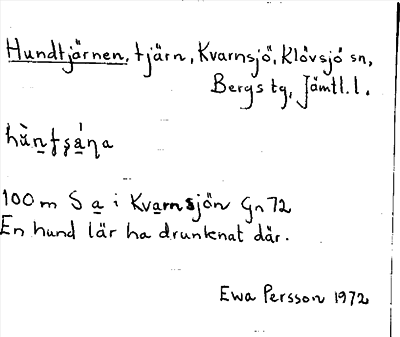 Hundtjärnen, tjärn, Kvarnsjö, Klövsjö sn,
Bergs tg, Jämtl. l.
100 m S a i Kvarnsjön Gn 72
En hund lär ha drunknat där.
Ewa Persson 1972